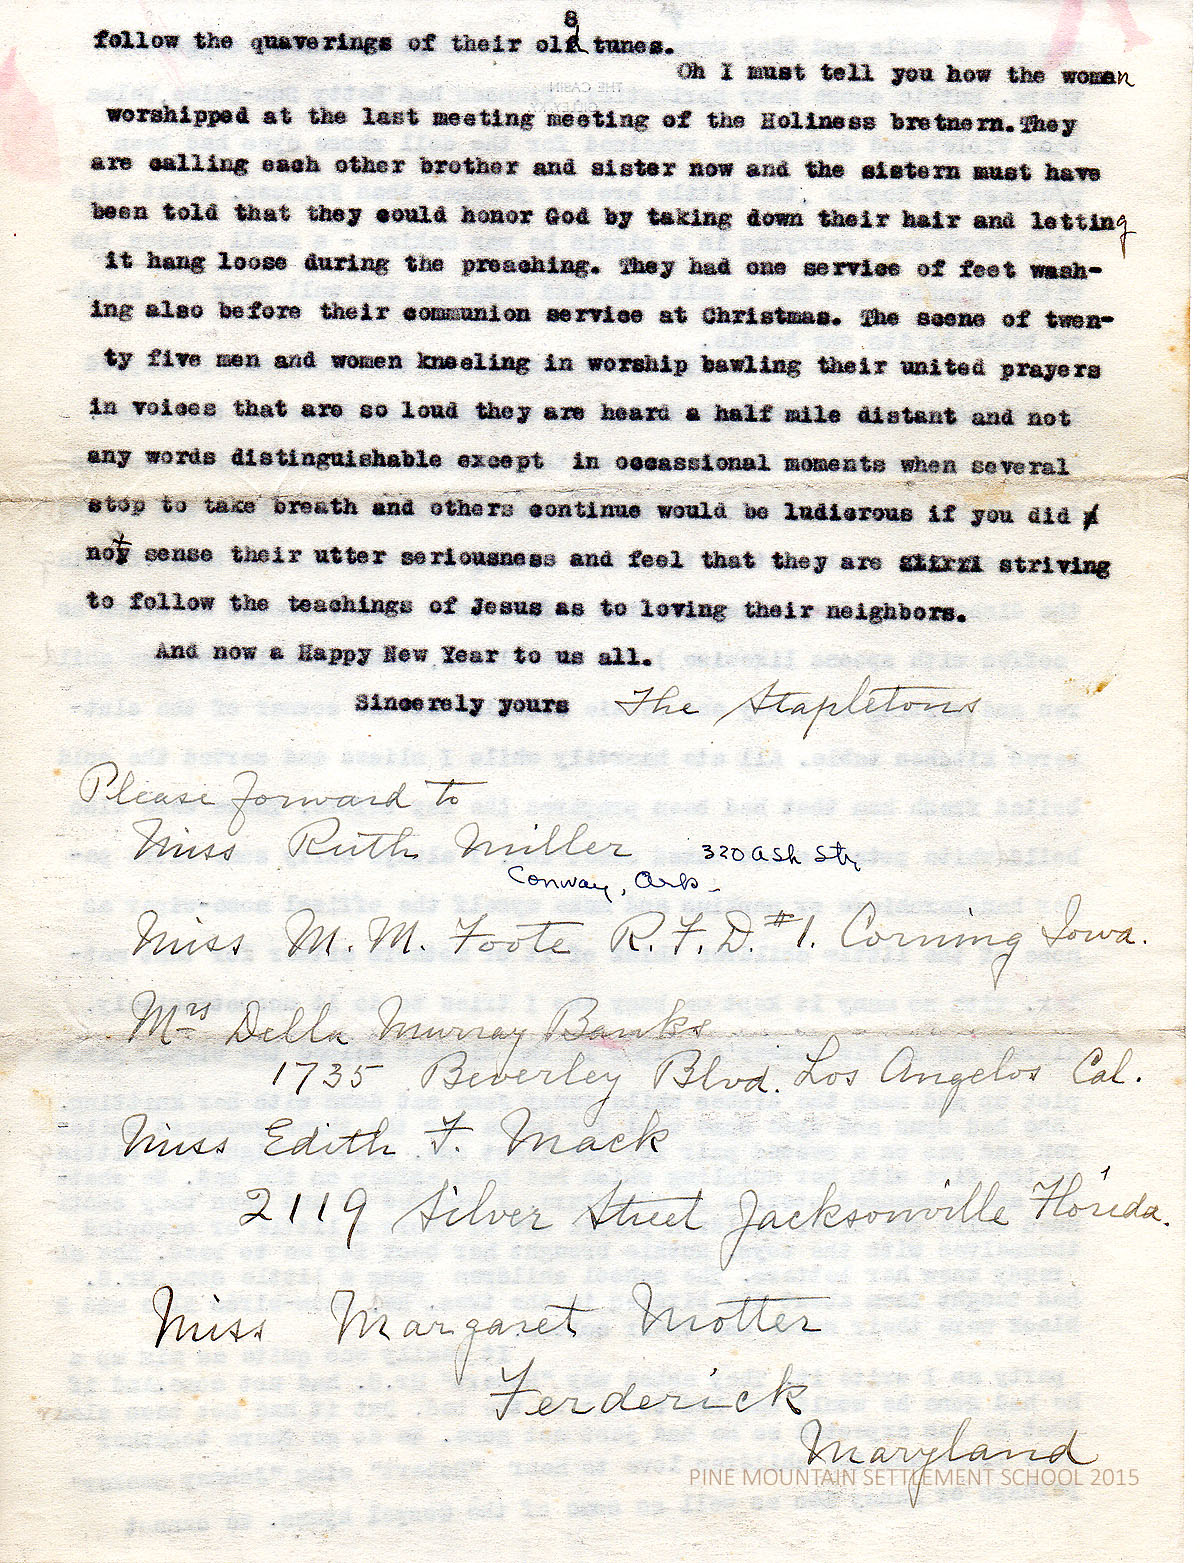 8
follow the quaverings of their old tunes.
Oh I must tell you how the woman
worshipped at the last meeting meeting of the Holiness bretnern.They
are calling each other brother and sister now and the sistern must have
been told that they could honor God by taking down their hair and letting
it hang loose during the preaching. They had one service of feet wash-
ing also before their communion service at Christmas. The scene of twen-
ty five men and women kneeling in worship bawling their united prayers
in voices that are so loud they are heard a half mile distant and not
any words distinguishable except in occassional moments when several
stop to take breath and others continue would be ludicrous if you did
not sense their utter seriousness and feel that they are striving
to follow the teachings of Jesus as to loving their neighbors.
And now a Happy New Year to us all.
Sincerely yours The Stapletons
Please forward to
Miss Ruth Miller 320 Ash Str
Conway, Ark.
Miss M. M. Foote R.F.D. #1. Corning Iowa.
Mrs Della Murray Banks
1735 Beverley Blvd. Los Angelos Cal.
Miss Edith F. Mack
2119 Silver Street Jacksonville Florida.
Miss Margaret Motter
Ferderick
Maryland
PINE MOUNTAIN SETTLEMENT SCHOOL 2015